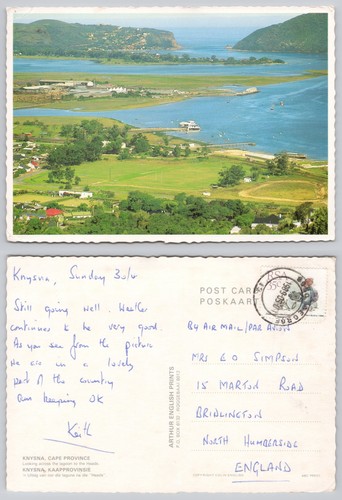 Knysna, Sunday 30/4
Still going well. Weather
continues to be very good.
As you see from the picture
we are in a lovely
part of the country
Am keeping OK
Keith
KNYSNA, CAPE PROVINCE
Looking across the lagoon to the Heads.
KNYSNA, KAAPPROVINSIE
ARTHUR ENGLISH PRINTS
POST CARD
POSKAART
RSA
BY AIR MAIL/PAR AVION
MRS E O SIMPSON
15 MARTON ROAD
BRIDLINGTON
NORTH HUMBERSIDE
ENGLAND